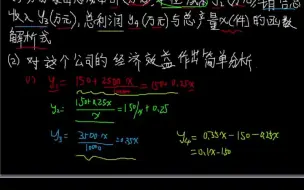 收入 y₃(万元), 总利润 y₄(万元)与总产量x(件)的函数
解析式
(2) 对这个公司的经济效益作出简单分析.
y₁ = 150+2500x/10000 = 150+0.25x
y₂ = 150+0.25x/x = 150/x + 0.25
y₃ = 3500x/10000 = 0.35x
y₄ = 0.35x-150-0.25x
= 0.1x-150